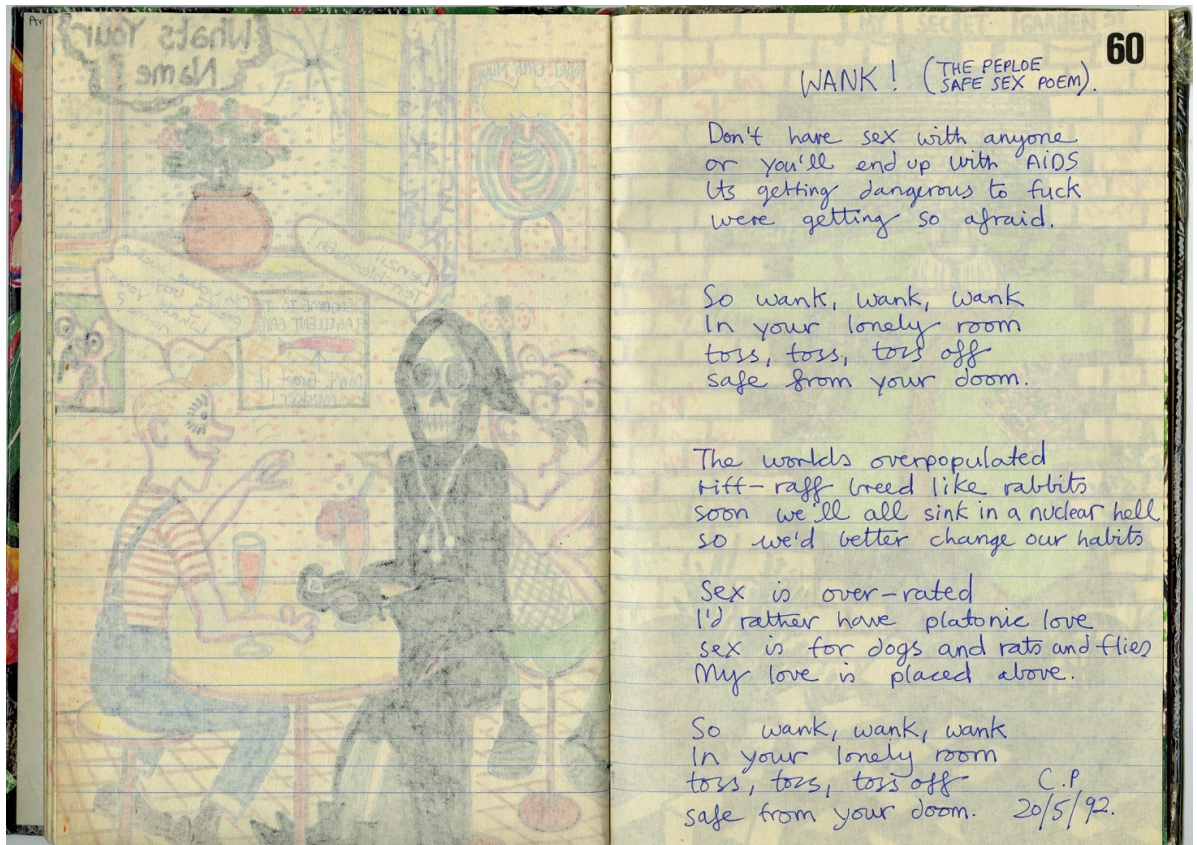 Whats Your
Name?
60
WANK! (THE PEPLOE
SAFE SEX POEM).
Don't have sex with anyone
or you'll end up with AIDS
Its getting dangerous to fuck
were getting so afraid.
So wank, wank, wank
In your lonely room
toss, toss, toss off
safe from your doom.
The worlds overpopulated
riff-raff breed like rabbits
soon we'll all sink in a nuclear hell
so we'd better change our habits
Sex is over-rated
I'd rather have platonic love
sex is for dogs and rats and flies
My love is placed above.
So wank, wank, wank
In your lonely room
toss, toss, toss off
safe from your doom.
C.P.
20/5/92.